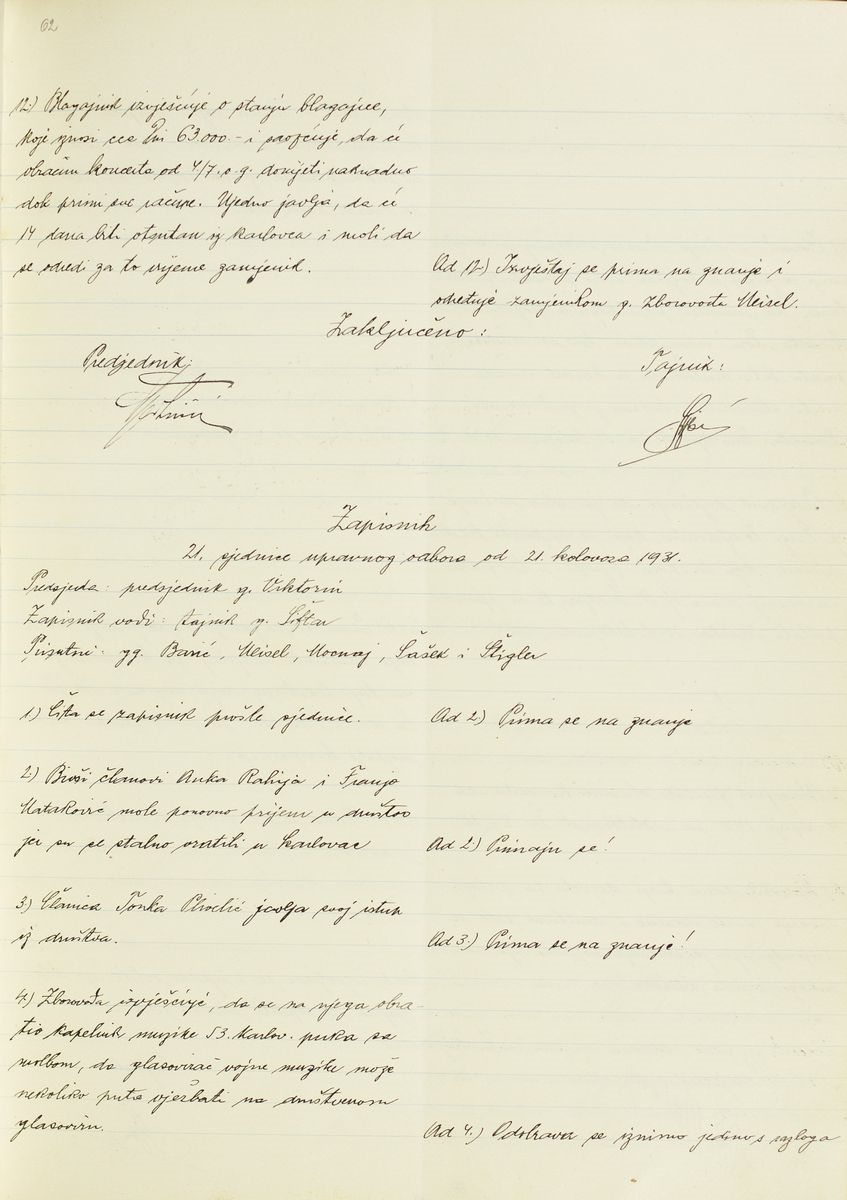 62
12.) Blagajnik izvješćuje o stanju blagajne,
koje iznosi cca Din 63.000.- i saopćuje, da će
obračun koncerta od 4/7. o. g. donijeti naknadno
dok primi sve račune. Ujedno javlja, da će
14 dana biti otsutan iz Karlovca i moli da
se odredi za to vrijeme zamjenik.
Ad 12.) Izvještaj se prima na znanje i
određuje zamjenikom g. zborovođa Meisel.
Zaključeno:
Predsjednik:
Tajnik:
Zapisnik
21. sjednice upravnog odbora od 21. kolovoza 1931.
Predsjeda: predsjednik g. Viktorin
Zapisnik vodi: tajnik g. Šiftar
Prisutni: gg. Barić, Meisel, Mocnaj, Šašek i Štigler
1.) Čita se zapisnik prošle sjednice.
Ad 2.) Prima se na znanje
2.) Bivši članovi Anka Rahija i Franjo
Mataković mole ponovno prijem u društvo
jer su se stalno vratili u Karlovac
Ad 2.) Primaju se!
3.) Članica Tonka javlja svoj istup
iz društva.
Ad 3.) Prima se na znanje!
4.) Zborovođa izvješćuje, da se na njega obra-
tio kapelnik muzike 53. Karlov. puka sa
molbom, da glasovirač vojne muzike može
nekoliko puta vježbati na društvenom
glasoviru.
Ad 4.) Odobrava se iznimno jedino s razloga